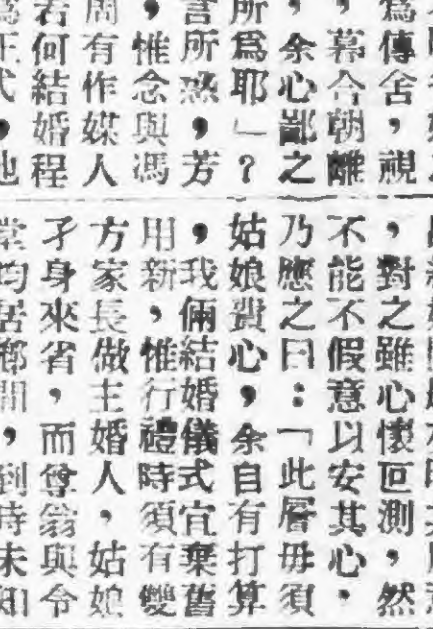 爲傳舍，視
，幕合朝離
，余心鄙之
所爲耶」？
言所惑，芳
，惟念與馮
周有作媒人
若何結婚程
正式，他
，對之雖心懷叵測，然
不能不假意以安其心，
乃應之曰：「此層毋須
姑娘費心，余自有打算
，我倆結婚儀式宜棄舊
用新，惟行禮時須有雙
方家長做主婚人，姑娘
孑身來省，而尊翁與令
堂均居鄉間，到時未知